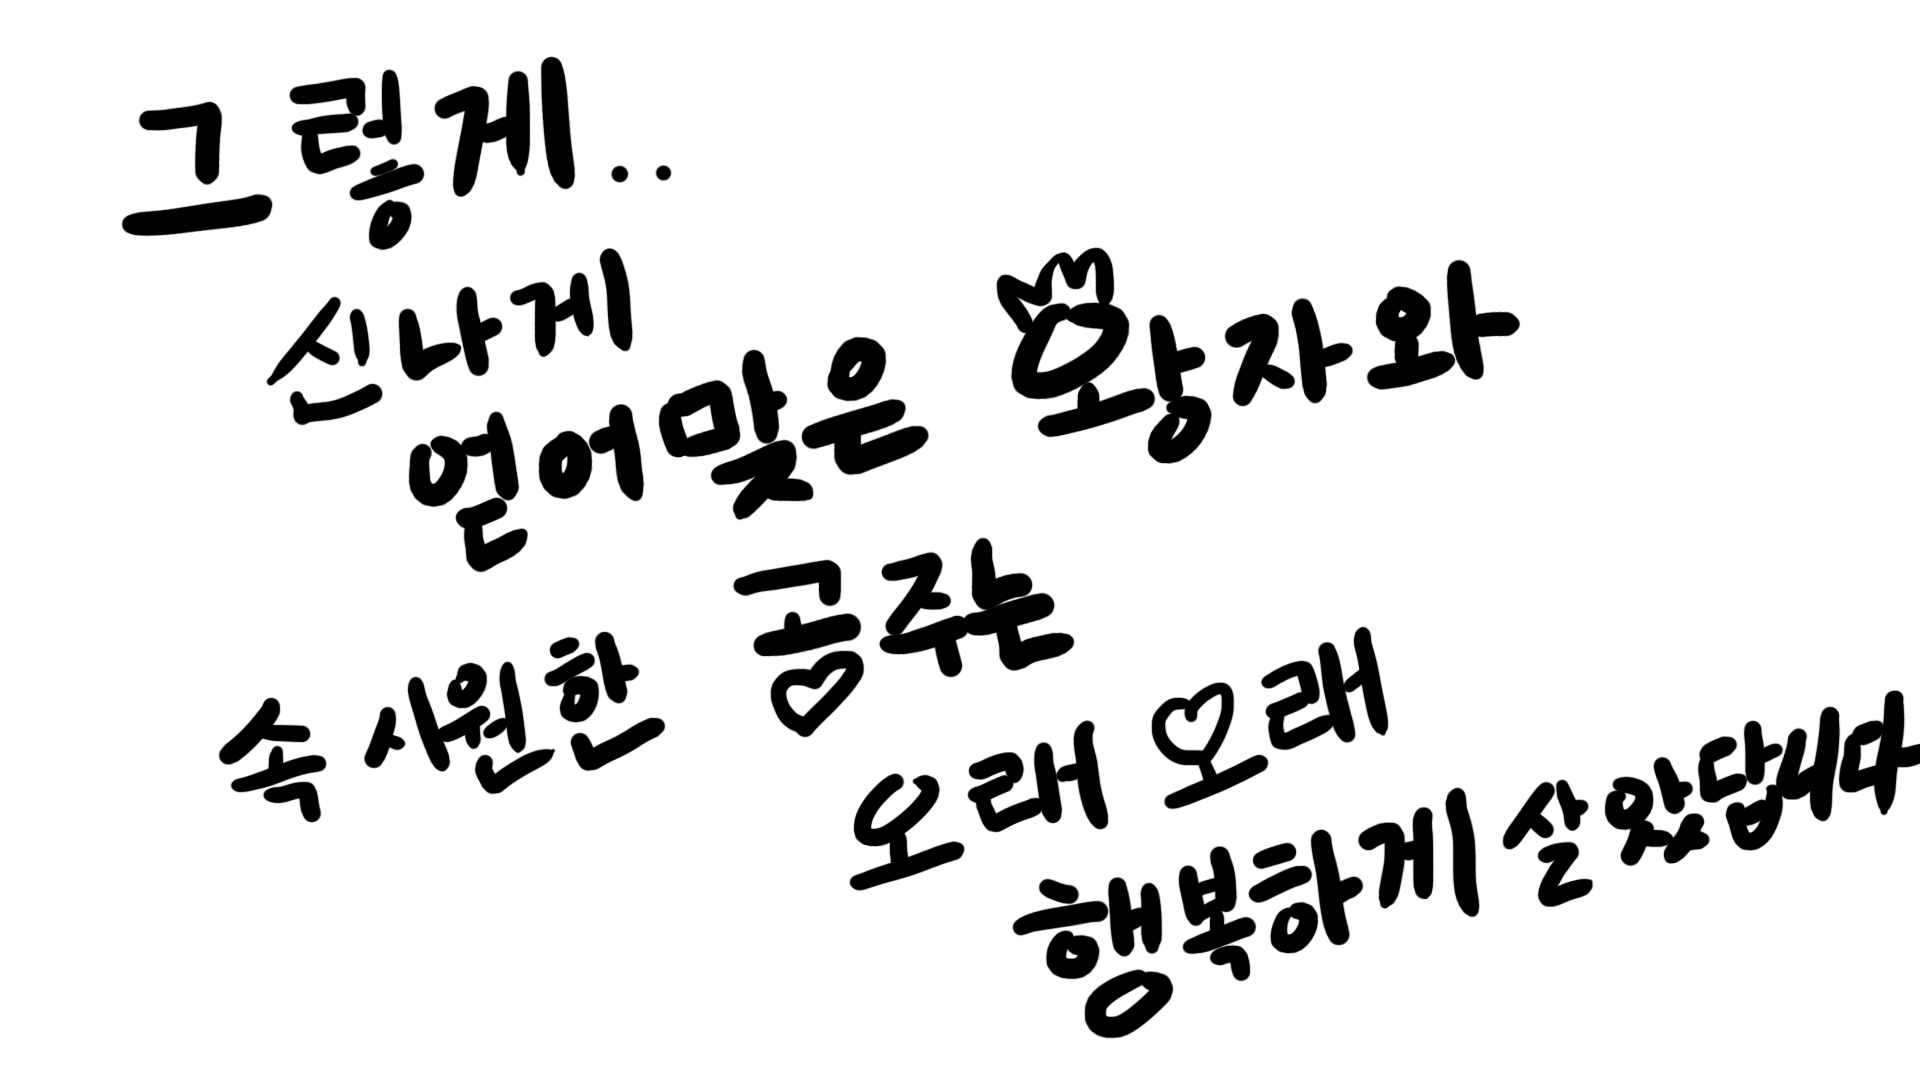 그렇게..
신나게
얻어맞은 왕자와
속 시원한 공주는
오래 오래
행복하게 살았답니다